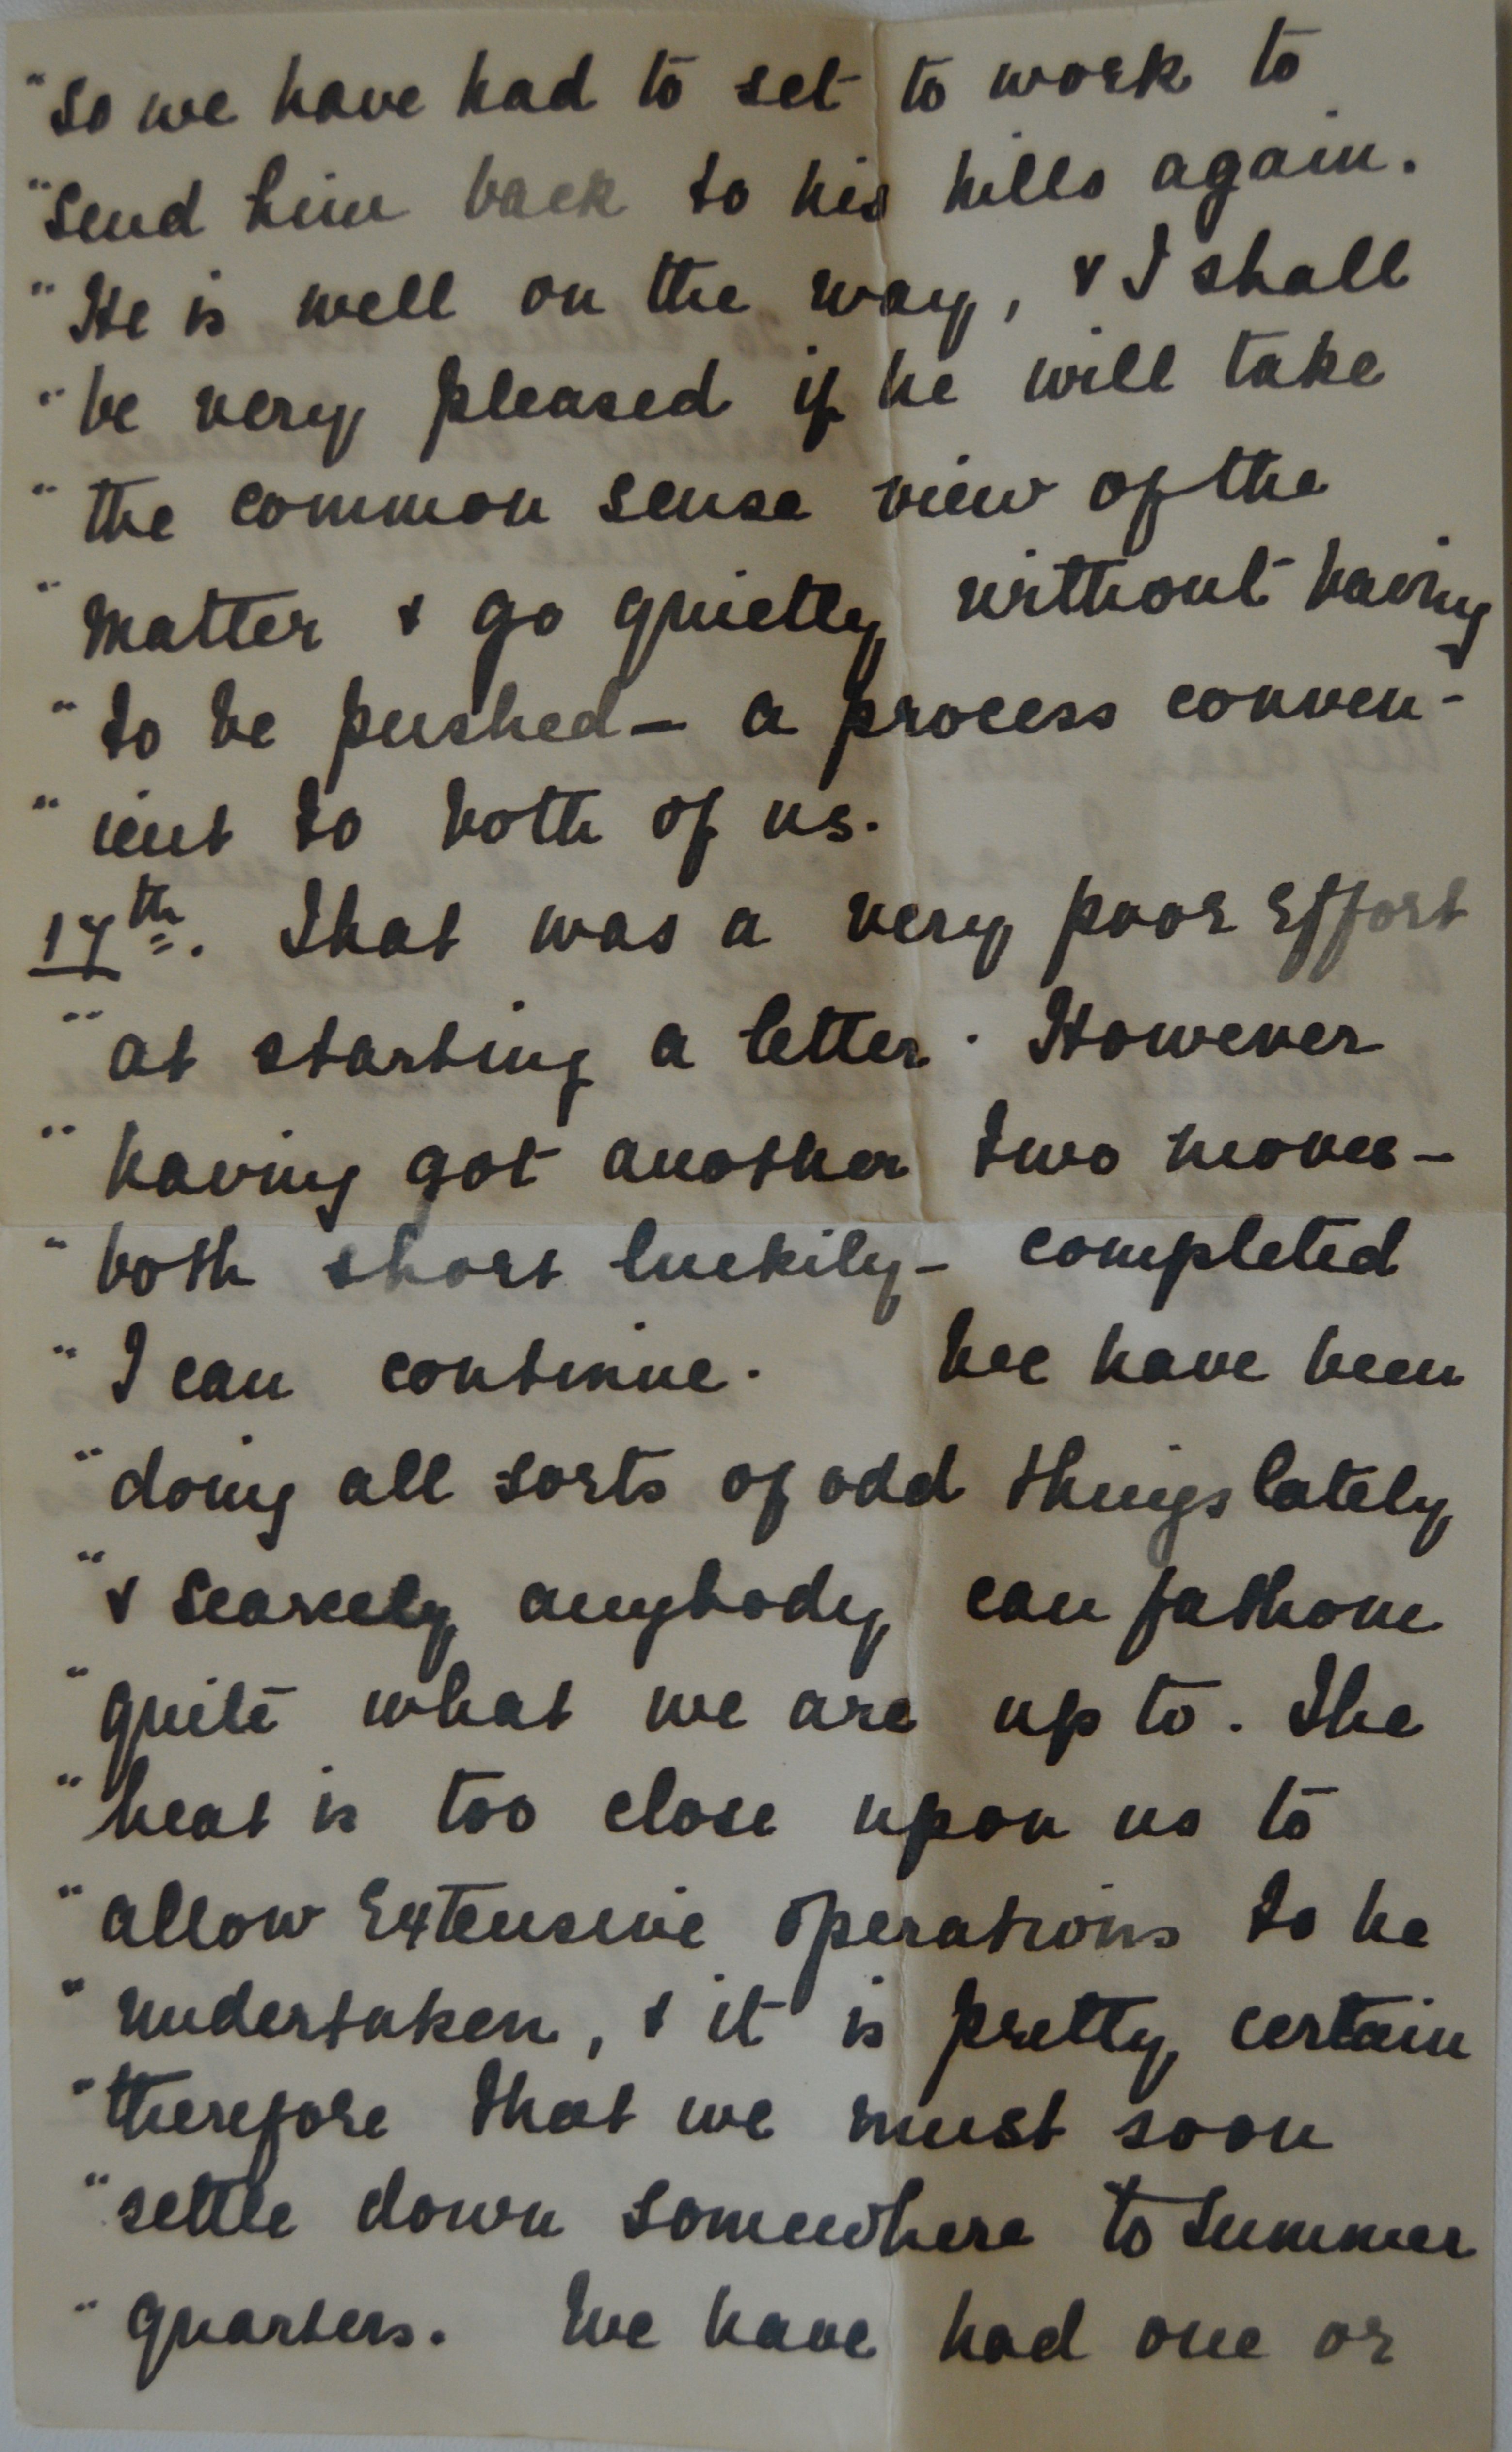 "So we have had to set to work to
"Send him back to his hills again.
"He is well on the way, & I shall
"be very pleased if he will take
"the common sense view of the
"matter & go quietly without having
"to be pushed — a process conven-
"ient to both of us.
17th. That was a very poor effort
"at starting a letter. However
"having got another two moves —
"both short luckily — completed
"I can continue. We have been
"doing all sorts of odd things lately
"& scarcely anybody can fathom
"quite what we are up to. The
"heat is too close upon us to
"allow Extensive operations to be
"undertaken, & it is pretty certain
"therefore that we must soon
"settle down somewhere to summer
"quarters. We have had one or